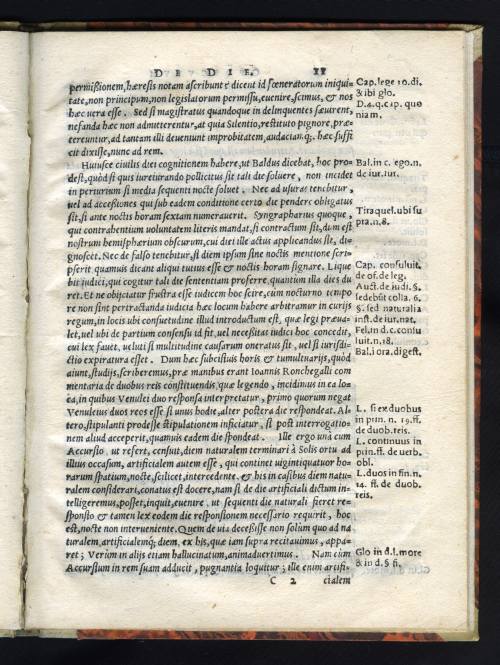 DE DIE. 11
permißionem, hæresis notam ascribunt: dicent id fœneratorum iniqui-
tate, non principum, non legislatorum permissu, euenire, scimus, & nos
hæc uera esse. Sed si magistratus quandoque in delinquentes sæuirent,
nefanda hæc non admitterentur, at quia Silentio, restituto pignore, præ-
tereuntur, ad tantam illi deuenunt improbitatem, audaciamq;. hæc suffi
cit dixisse, nunc ad rem.
Cap. lege 10. di.
& ibi glo.
D. 4. q. cap. quo
niam.
Huiusce ciuilis diei cognitionem habere, ut Baldus dicebat, hoc pro-
dest, quòd si quis iureiurando pollicitus sit tali die soluere, non incidet
in periurium si media sequenti nocte soluet. Nec ad usuras tenebitur,
uel ad accessiones qui sub eadem conditione certo die pendere obligatus
sit, si ante noctis horam sextam numerauerit. Syngrapharius quoque,
qui contrahentium uoluntatem literis mandat, si contractum sit, dum est
nostrum hemisphærium obscurum, cui diei ille actus applicandus sit, di-
gnoscet. Nec de falso tenebitur, si diem ipsum sine noctis mentione scri-
pserit quamuis dicant aliqui tutius esse & noctis horam signare. Lique
bit iudici, qui cogitur tali die sententiam proferre, quantum illa dies du
ret. Et ne obijciatur frustra esse iudicem hoc scire, cùm nocturno tempo
re non sint pertractanda iudicia hæc locum habere arbitramur in curijs
regum, in locis ubi consuetudine illud introductum est, quæ legi præua-
let, uel ubi de partium consensu id fit, uel necessitas iudici hoc concedit,
cui lex fauet, ueluti si multitudine causarum oneratus sit, uel si iurisdi-
ctio expiratura esset. Dum hæc subcisiuis horis & tumultuarijs, quòd
aiunt, studijs, scriberemus, præ manibus erant Ioannis Ronchegalli com
mentaria de duobus reis constituendis, quæ legendo, incidimus in ea lo
ca, in quibus Venulei duo responsa interpretatur, primo quorum negat
Venuleius duos reos esse si unus hodie, alter postera die respondeat. Al-
tero, stipulanti prodesse stipulationem inficiatur, si post interrogatio-
nem aliud acceperit, quamuis eadem die spondeat. Ille ergo unà cum
Accursio ut refert, censuit, diem naturalem terminari à Solis ortu ad
illius occasum, artificialem autem esse, qui continet uigintiquatuor ho-
rarum spatium, nocte, scilicet, intercedente. & his in casibus diem natu-
ralem considerari, conatus est docere, nam si de die artificiali dictum in-
telligeremus, posset, inquit, euenire ut sequenti die naturali fieret re-
sponsio & tamen lex eodem die responsionem necessario requirit, hoc
est, nocte non interueniente. Quem de uia decessisse non solùm quo ad na
turalem, artificialemq; diem, ex his, quæ iam supra recitauimus, appa-
ret; Verùm in alijs etiam hallucinatum, animaduertimus. Nam cùm
Accursium in rem suam adducit, pugnantia loquitur; ille enim artifi-
Bal. in c. ego. n.
de iur. iur.
Tiraquel. ubi su
pra. n. 8.
Cap. consuluit.
de of. de leg.
Auct. de iudi. §.
sedebūt colla. 6.
§. sed naturalia
inst. de iur. nat.
Fel. in d. c. consu
luit. n. 18.
Bal. i ora. digest.
L. si ex duobus
in prin. n. 19. ff.
de duob. reis.
L. continuus in
prin. ff. de uerb.
obl.
L. duos in fin. n.
14. ff. de duob.
reis.
Glo in d. l. more
& in d. § fi.
C 2 cialem